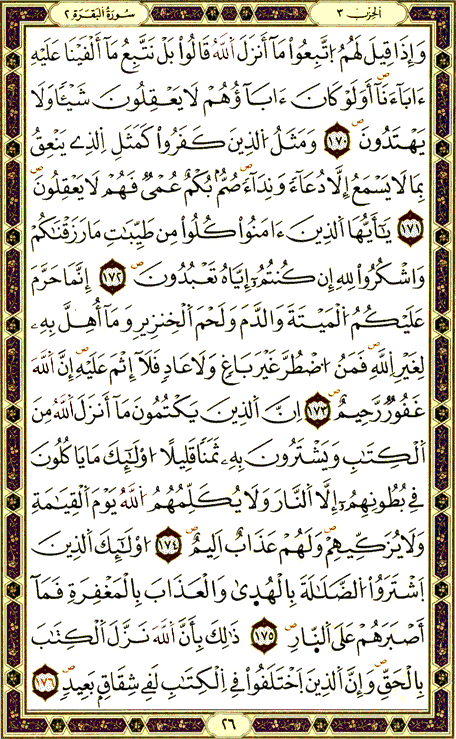 الحزب ٣ سورة البقرة ٢
وَإِذَا قِيلَ لَهُمُ اتَّبِعُواْ مَآ أَنزَلَ اَللَّهُ قَالُواْ بَلْ نَتَّبِعُ مَآ أَلْفَيْنَا عَلَيْهِ
ءَابَآءَنَآ أَوَلَوْ كَانَ ءَابَآؤُهُمْ لَا يَعْقِلُونَ شَيْـًٔا وَلَا
يَهْتَدُونَ ١٧٠ وَمَثَلُ اُلذِينَ كَفَرُواْ كَمَثَلِ اِلذِے يَنْعِقُ
بِمَا لَا يَسْمَعُ إِلَّا دُعَآءً وَنِدَآءً صُمُّۢ بُكْمٌ عُمْىٌ فَهُمْ لَا يَعْقِلُونَ
١٧١ يَٰٓأَيُّهَا اَلذِينَ ءَامَنُواْ كُلُواْ مِن طَيِّبَٰتِ مَا رَزَقْنَٰكُمْ
وَاشْكُرُواْ لِلهِ إِن كُنتُمُۥٓ إِيَّاهُ تَعْبُدُونَ ١٧٢ إِنَّمَا حَرَّمَ
عَلَيْكُمُ اُلْمَيْتَةَ وَالدَّمَ وَلَحْمَ اَلْخِنزِيرِ وَمَآ أُهِلَّ بِهِۦ
لِغَيْرِ اِللَّهِ فَمَنُ اُضْطُرَّ غَيْرَ بَاغٍ وَلَا عَادٍ فَلَآ إِثْمَ عَلَيْهِ إِنَّ اَللَّهَ
غَفُورٌ رَّحِيمٌ ١٧٣ إِنَّ اَلذِينَ يَكْتُمُونَ مَآ أَنزَلَ اَللَّهُ مِنَ
اَلْكِتَٰبِ وَيَشْتَرُونَ بِهِۦ ثَمَنًا قَلِيلًا اوْلَٰٓئِكَ مَا يَاكُلُونَ
فِے بُطُونِهِمُۥٓ إِلَّا اَلنَّارَ وَلَا يُكَلِّمُهُمُ اُللَّهُ يَوْمَ اَلْقِيَٰمَةِ
وَلَا يُزَكِّيهِمْ وَلَهُمْ عَذَابٌ اَلِيمٌ ١٧٤ اوْلَٰٓئِكَ اَلذِينَ
اَشْتَرَوُاْ اُلضَّلَٰلَةَ بِالْهُدَىٰ وَالْعَذَابَ بِالْمَغْفِرَةِ فَمَآ
أَصْبَرَهُمْ عَلَى اَلنَّارِ ١٧٥ ذَٰلِكَ بِأَنَّ اَللَّهَ نَزَّلَ اَلْكِتَٰبَ
بِالْحَقِّ وَإِنَّ اَلذِينَ اَخْتَلَفُواْ فِے اِلْكِتَٰبِ لَفِے شِقَاقٍۭ بَعِيدٍ ١٧٦
٢٦